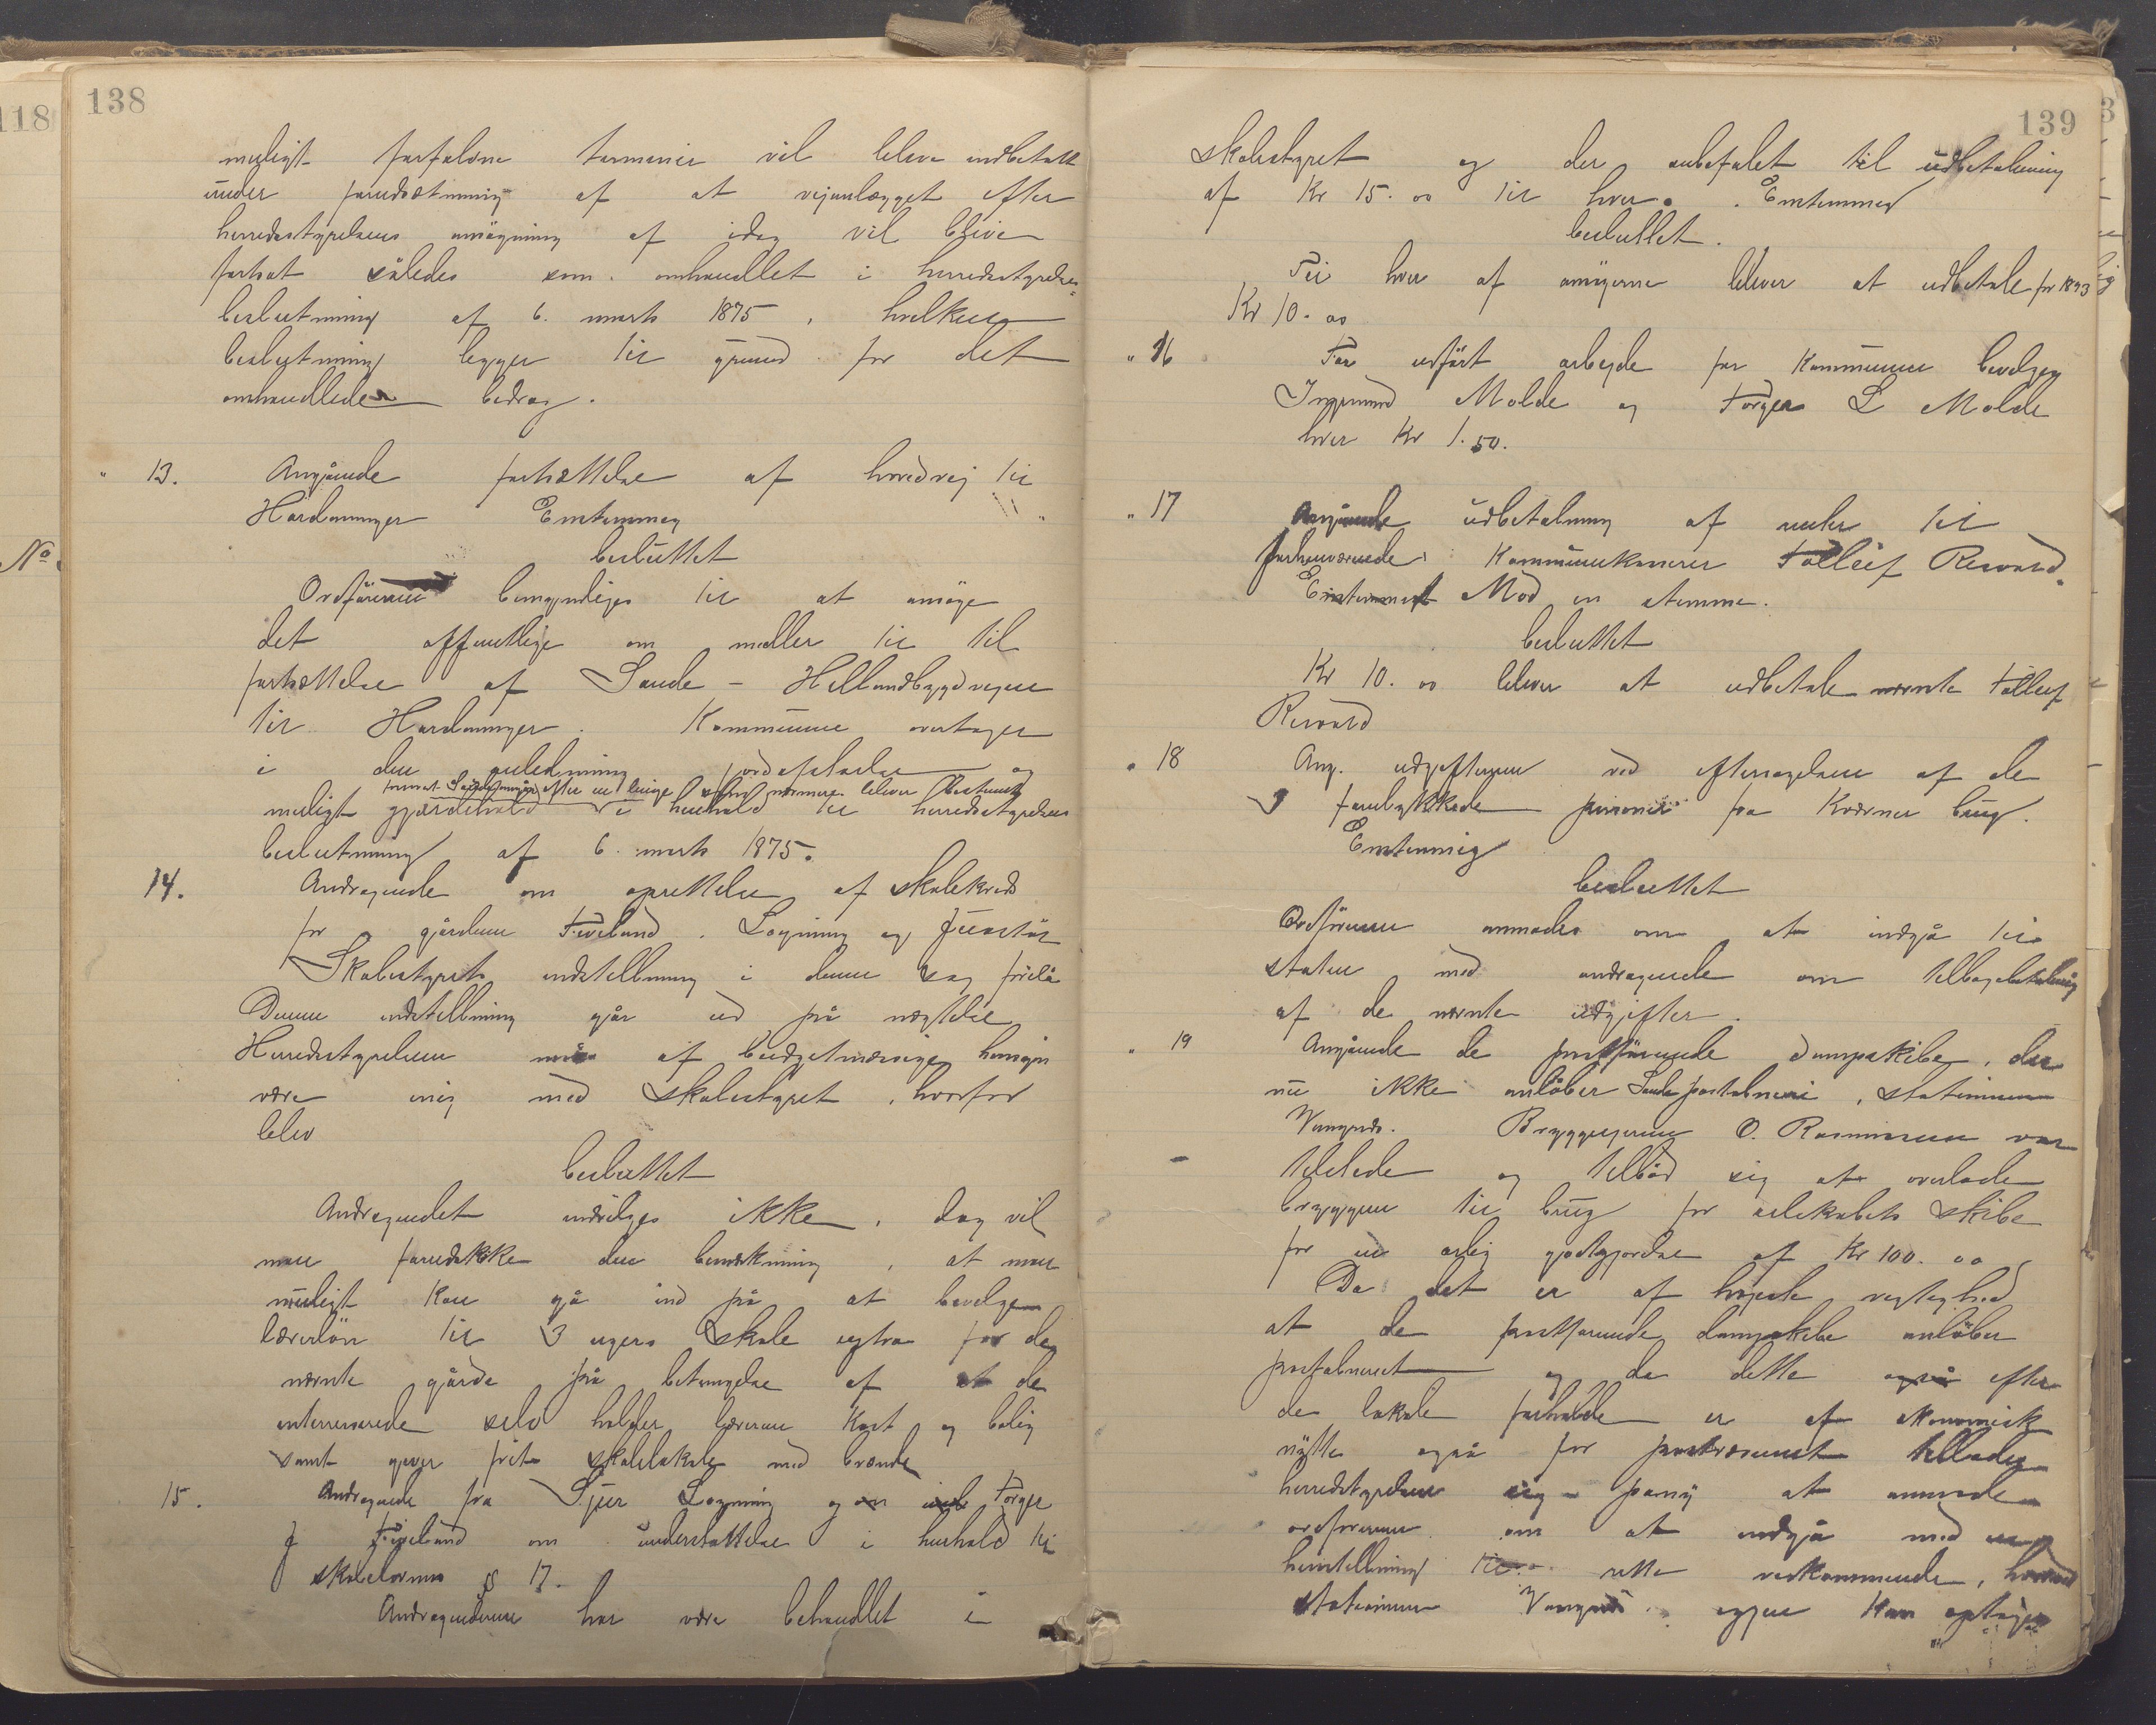 118
138
muligt forfaldne terminer vil bleve indbetalt
under forudsætning af at vejanlægget efter
herredsstyrelsens ansøgning af idag vil blive
fortsat således som omhandlet i herredsstyrelses-
beslutning af 6. marts 1875, hvilken
beslutning legger til grund for det
omhandlede bedrag.
" 13. Angående fortsættelse af hovedvej til
Hardanger Enstemmig
besluttet
Ordføreren bemyndiges til at ansøge
det offentlige om midler til til
fortsættelse af Sande - Hellandbygdvejen
til Hardanger. Kommunen overtager
i den anledning jordafståelse og
efter en linje som nærmere bliver bestemt
muligt gjærdehold i henhold til herredsstyrelsens
No
beslutning af 6. marts 1875.
14. Andragende om oprettelse af skolekreds
for gårdene Fiveland, Løgning og
Skolestyrets indstillning i denne sag forelå
Denne indstillning går ud på nægtelse
Herredsstyrelsen må af budgetmæssige hensyn
være enig med skolestyret, hvorfor
blev
besluttet
Andragendet indvilges ikke, dog vil
man forudskikke den bemærkning, at man
muligt kan gå ind på at bevilge
lærerløn til 3 ugers skole extra for de
nævnte gårde på betingelse af at de
interesserede selv holder læreren kost og bolig
samt giver frit skolelokale med brænde
15. Andragende fra Sjur Løgning og Torger
J Fiveland om understøttelse i henhold til
skoleloven § 17.
Andragenderne har være behandlet i
139
skolestyret og der anbefalet til udbetaling
af Kr 15.00 til hver. Enstemmig
besluttet.
Til hver af ansøgerne bliver at udbetale for 1893
Kr 10.00
" 16 For udført arbejde for Kommunen bevilges
Ingemund Molde og Torger L Molde
hver Kr 1.50.
" 17 Angående udbetalning af til
forhenværende Kommunekasserer Tollëif Risvold.
Enstemmigt Mod en stemme.
besluttet
Kr 10.00 bliver at udbetale nævnte Tolleif
Risvold
" 18 Ang. udgifterne ved eftersøgelsen af de
3 forulykkede personer fra Kværner brug.
Enstemmig
besluttet
Ordføreren anmodes om at indgå til
staten med andragende om tilbagebetalning
af de nævnte udgifter.
" 19 Angående de postførende dampskibe, der
nu ikke anløber Sande postabneri, stationen
Vangsnes. Bryggeejeren O. Rasmussen var
tilstede og tilbød sig at overlade
bryggen til brug for selskabets skibe
for en årlig godtgjørelse af Kr 100.00
Da det er af højeste vigtighed
at de postførende dampskibe anløber
postabneriet og da dette også efter
de lokale forholde er af økonomisk
nytte også for postvæsenet tillader
herredsstyrelsen sig pany at anmode
ordføreren om at indgå med en
henstillning til rette vedkommende, hvorved
stationen Vangsnes igjen kan optages